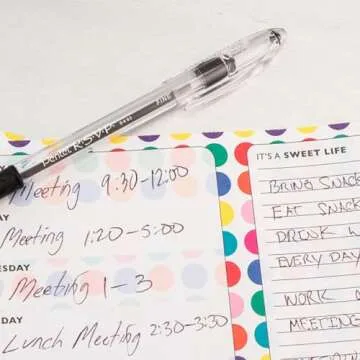 Pentel R.S.V.P. FINE
Meeting 9:30-12:00
AY
Meeting 1:20-5:00
ESDAY
Meeting 1-3
DAY
Lunch Meeting 2:30-3:30
IT'S A SWEET LIFE
BRING SNACK
EAT SNACK
DRINK W
EVERY DAY
WORK M
MEETING